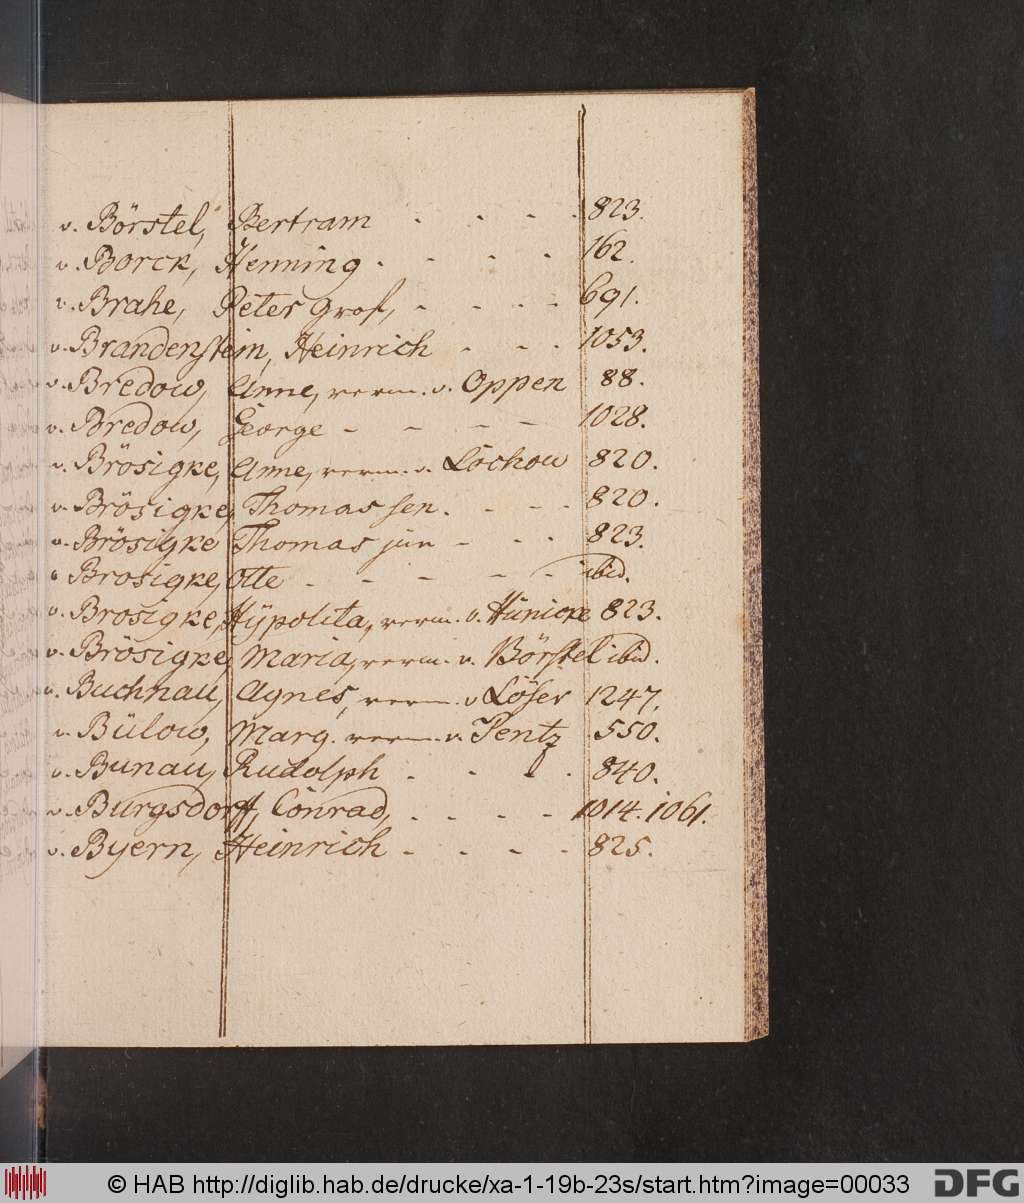 v. Börstel, Bertram - - - - 823.
v. Borck, Henning - - - - 162.
v. Brahe, Peter Graf, - - - - 691.
v. Brandenstein, Heinrich - - - 1053.
v. Bredow, Anne, verm. v. Oppen 88.
v. Bredow, George - - - - 1028.
v. Brösigke, Anne, verm. v. Lochow 820.
v. Brösigke, Thomas sen. - - - 820.
v. Brösigke Thomas jun - - - 823.
v. Brosigke, Otte - - - - - ibid.
v. Brosigke, Hÿpolita, verm. v. Hünicke 823.
v. Brösigke, Maria, verm. v. Börstel ibid.
v. Buchnau, Agnes, verm. v Löser 1247.
v. Bülow, Marg. verm. v. Pentz 550.
v. Bunau, Rudolph - - - - 840.
v. Burgsdorff, Conrad, - - - - 1014. 1061.
v. Byern, Heinrich - - - - - 825.
© HAB http://diglib.hab.de/drucke/xa-1-19b-23s/start.htm?image=00033
DFG